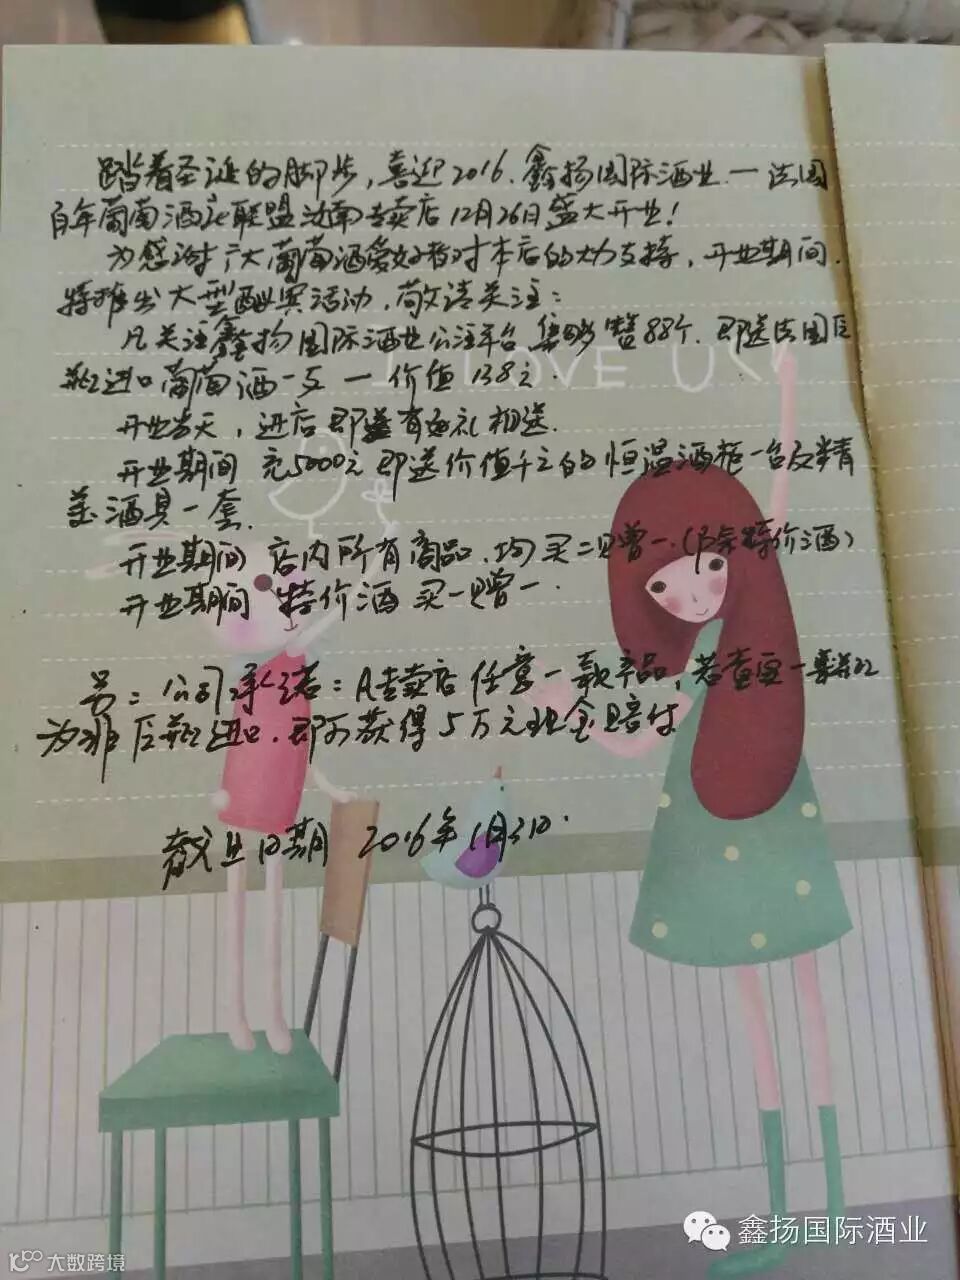 踏着圣诞的脚步，喜迎2016.鑫扬国际酒业一法国
百年葡萄酒庄联盟汝南专卖店12月26日盛大开业！
为感谢广大葡萄酒爱好者对本店的大力支持，开业期间.
特推出大型酬宾活动.敬请关注：
凡关注鑫扬国际酒业公注平台集赞88个.即送法国原
瓶进口葡萄酒一支一价值138元.
I LOVE U
开业当天，进店即有好礼相送.
开业期间充5000元即送价值千元的恒温酒柜一台及精
美酒具一套.
开业期间店内所有商品.均买二赠一.(除特价酒)
开业期间特价酒买一赠一.
另：公司承诺：凡专卖店任意一款产品，若查实一瓶
为非原瓶进口.即可获得5万元现金赔付
截止日期 2016年1月3日.
鑫扬国际酒业
大数跨境